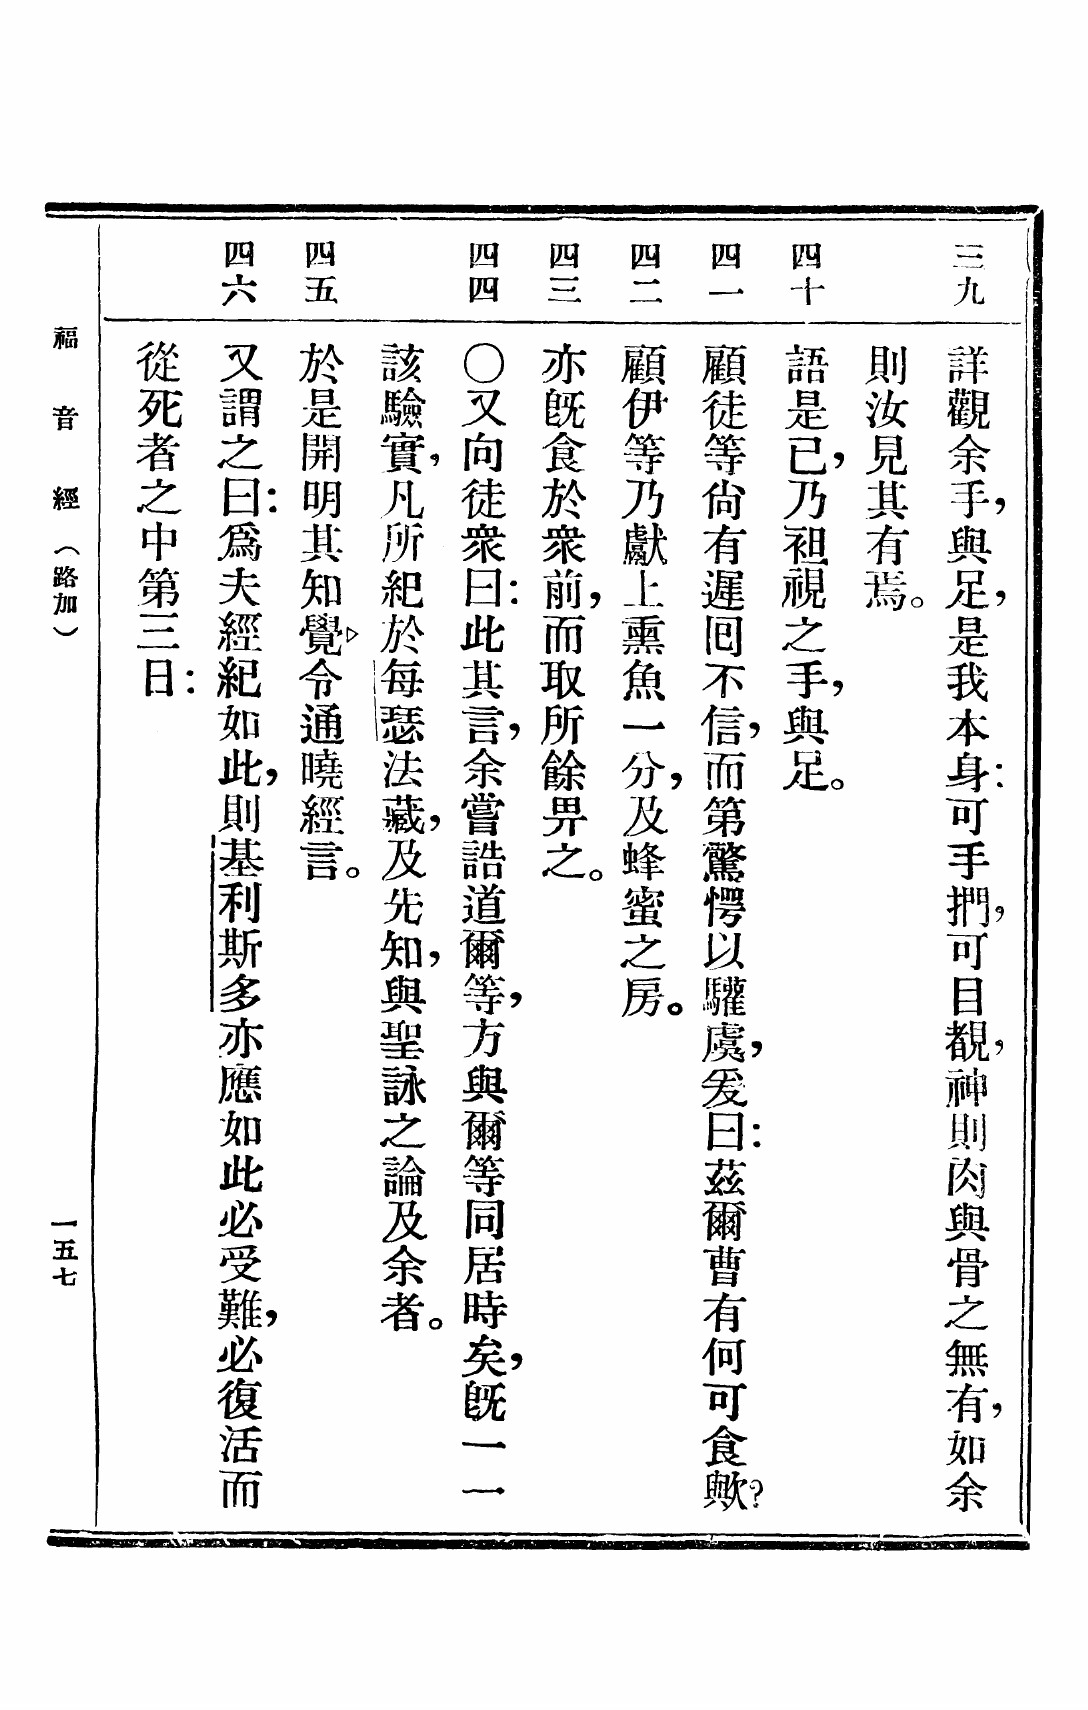 三九
詳觀余手，與足，是我本身：可手捫，可目覩，神則肉與骨之無有，如余
則汝見其有焉。
四十
語是已，乃袒視之手，與足。
四一
顧徒等尙有遲囘不信，而第驚愕以驩虞，爰曰：茲爾曹有何可食歟？
四二
顧伊等乃獻上熏魚一分，及蜂蜜之房。
四三
亦旣食於衆前，而取所餘畀之。
四四
〇又向徒衆曰：此其言，余嘗誥道爾等，方與爾等同居時矣，旣一一
該驗實，凡所紀於每瑟法藏，及先知，與聖詠之論及余者。
四五
於是開明其知覺，令通曉經言。
四六
又謂之曰：爲夫經紀如此，則基利斯多亦應如此必受難，必復活而
從死者之中第三日：
福音經（路加）
一五七